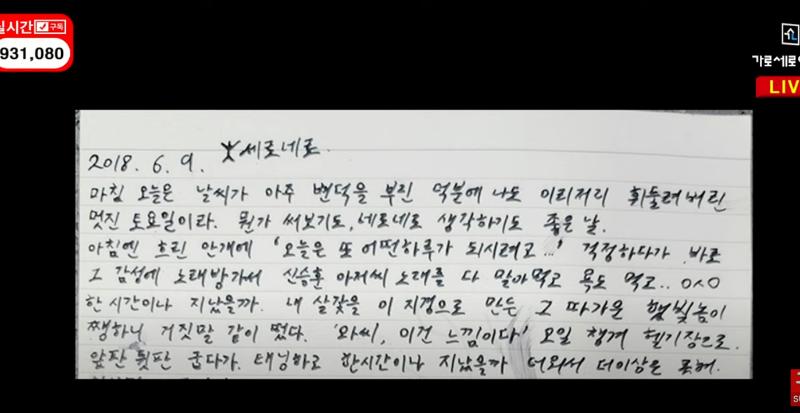 실시간 구독
931,080
가로세로
LIV
2018. 6. 9. 세로네로.
마침 오늘은 날씨가 아주 변덕을 부린 덕분에 나도 이리저리 휘둘려버린
멋진 토요일이라. 뭔가 써보기도, 네로네로 생각하기도 좋은 날.
아침엔 흐린 안개에 '오늘은 또 어떤하루가 되시려고...' 걱정하다가 바로
그 감성에 노래방가서 신승훈 아저씨 노래를 다 말아먹고 욕도 먹고.. ㅇㅅㅇ
한 시간이나 지났을까. 내 살갗을 이 지경으로 만든 그 따가운 햇빛놈이
쨍하니 거짓말 같이 떴다. '와씨, 이건 느낌이다' 오일 챙겨 헬기장으로.
앞판 뒷판 굽다가. 태닝하고 한시간이나 지났을까 더워서 더이상은 못해.